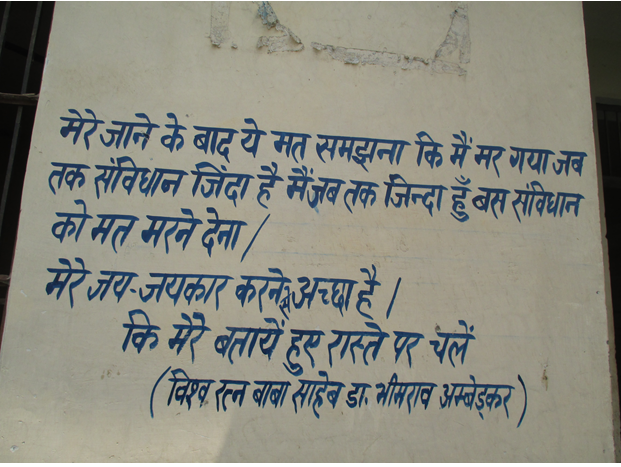 मेरे जाने के बाद ये मत समझना कि मैं मर गया जब
तक संविधान जिंदा है मैं जब तक जिन्दा हूँ बस संविधान
को मत मरने देना /
मेरे जय-जयकार करने से अच्छा है /
कि मेरे बतायें हुए रास्ते पर चलें
(विश्व रत्न बाबा साहेब डा. भीमराव अम्बेड्कर)